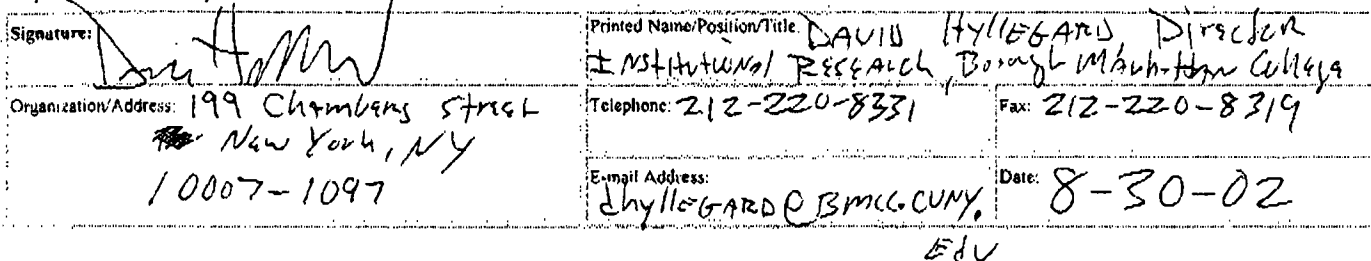 Signature:
Printed Name/Position/Title: DAVID HyllEGARD, Director
INstitutioNal RESEARCh, Borough Manhattan College
Organization/Address: 199 Chambers Street
New York, NY
10007-1097
Telephone: 212-220-8331
Fax: 212-220-8319
E-mail Address:
dhyllEGARD@BMCC.CUNY.
Edu
Date: 8-30-02